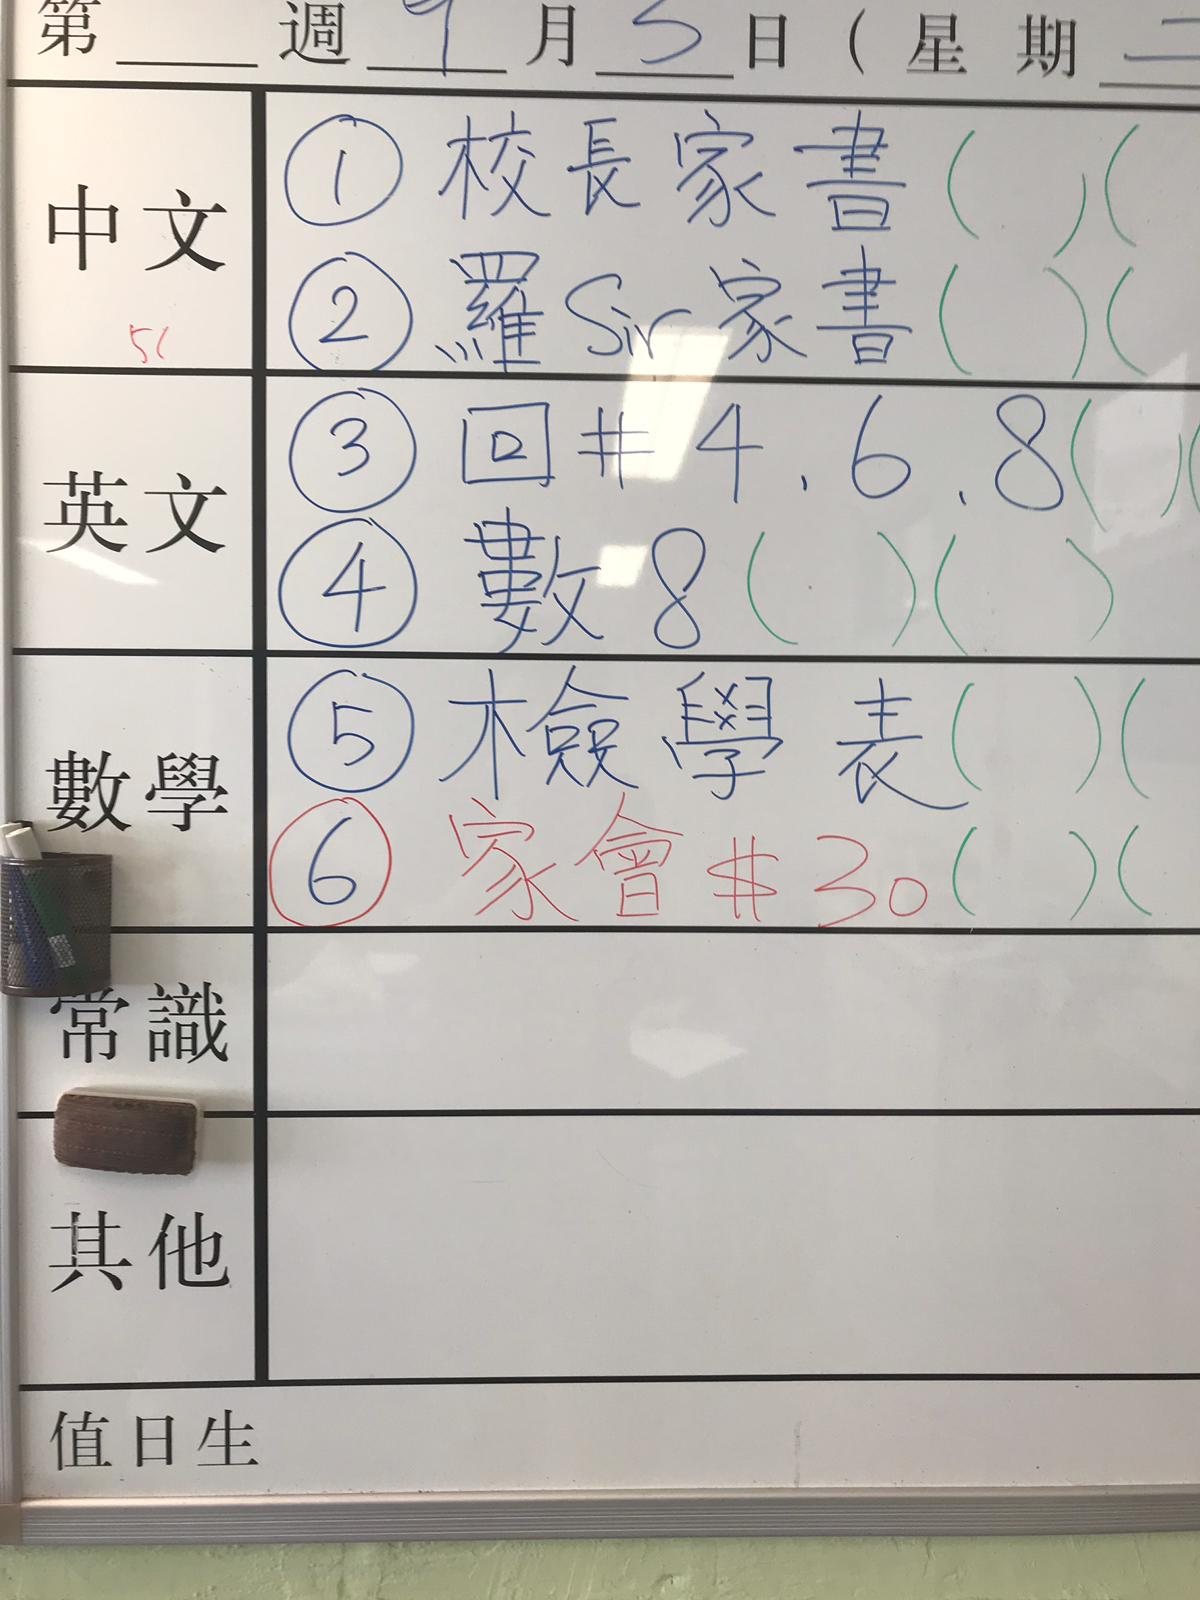 第 週 9 月 5 日 ( 星 期 二
中文
① 校長家書( )(
② 羅Sir家書( )(
英文
③ 回 #4.6.8( )(
④ 數8( )( )
數學
⑤ 檢學表( )(
⑥ 家會#30( )(
常識
其他
值日生